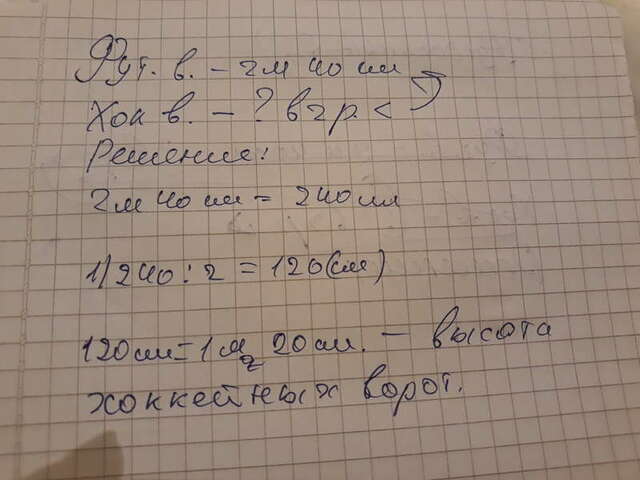 Фут. в. – 2м 40 см
Хок в. – ? в 2р <
Решение:
2м 40 см = 240 см
1) 240 : 2 = 120 (см)
120 см = 1 м 20 см. – высота
хоккейных ворот.